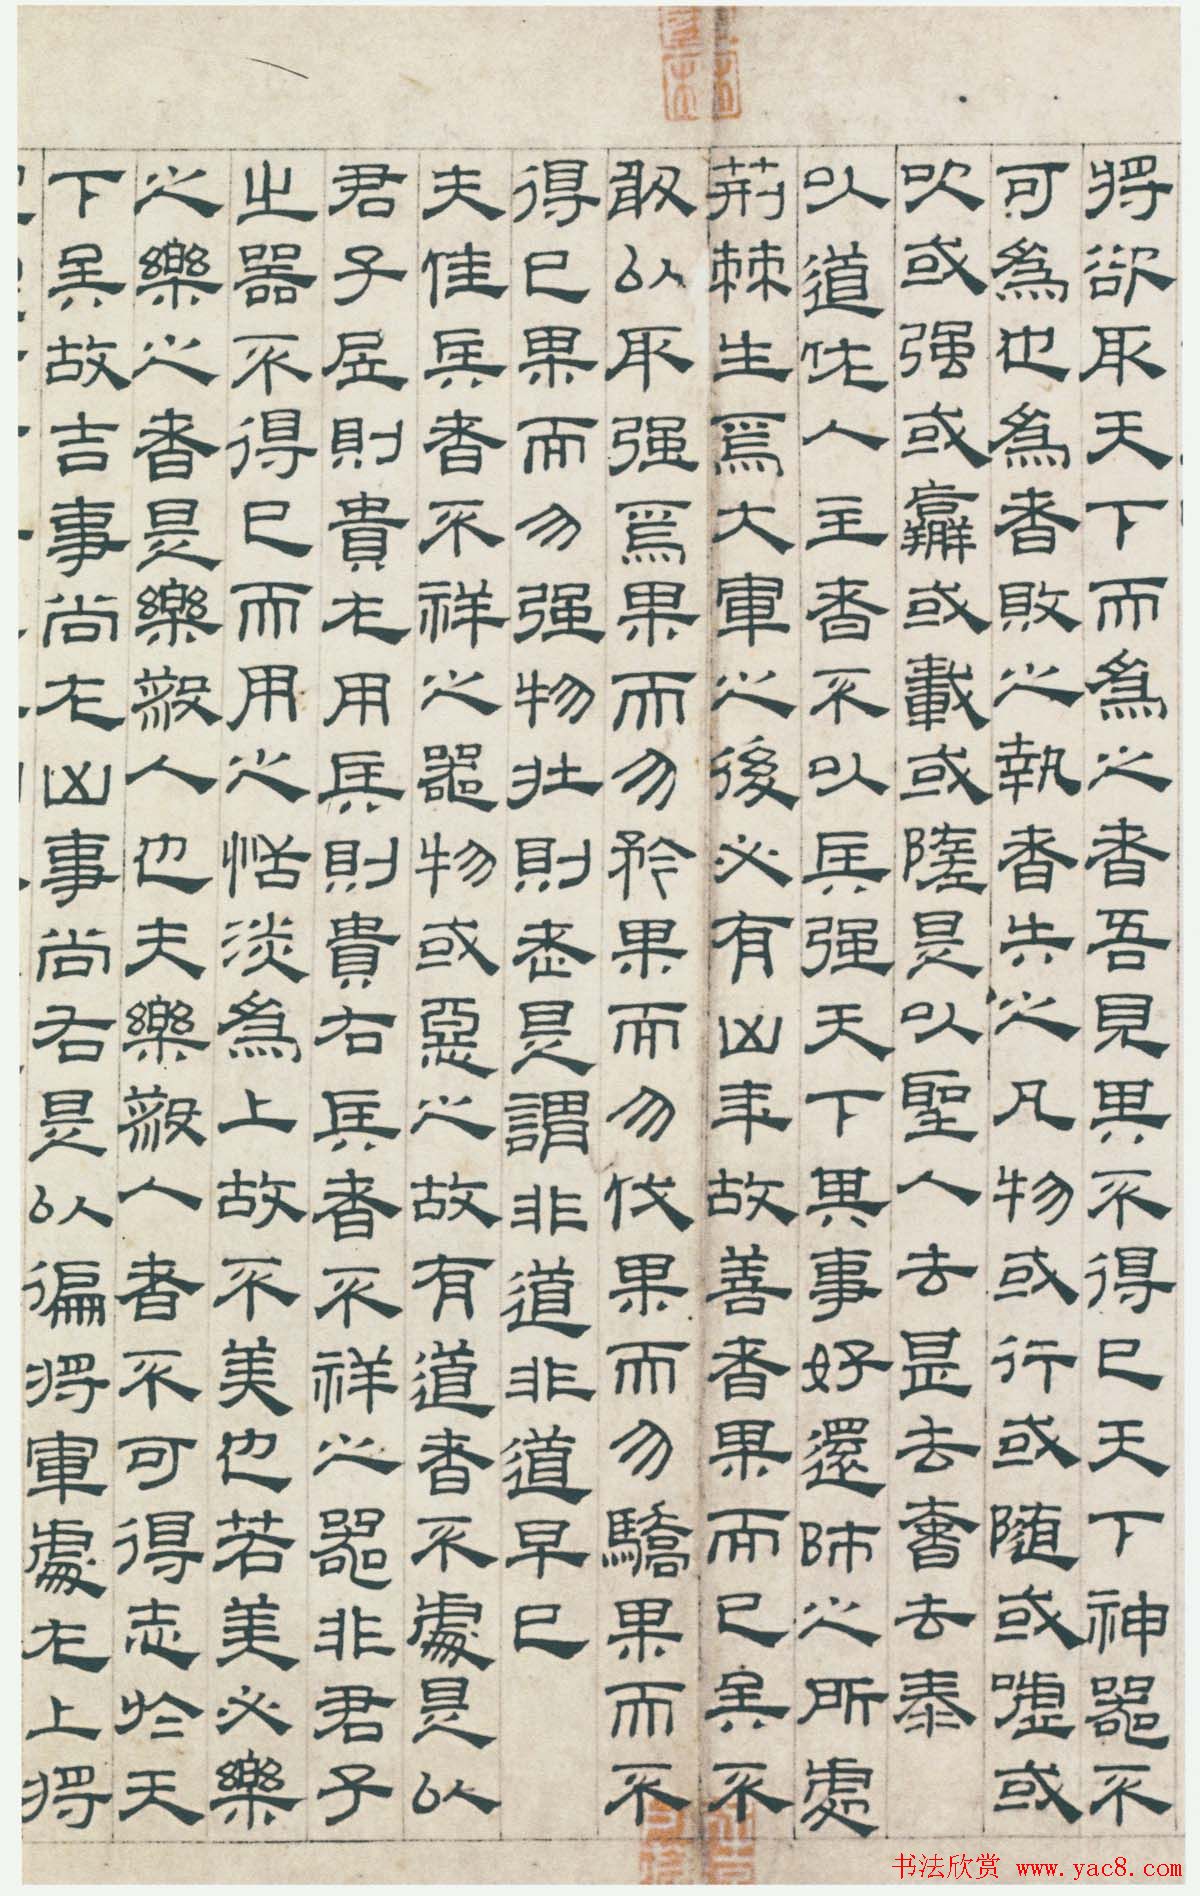 將欲取天下而為之者吾見其不得已天下神器不
可為也為者敗之執者失之凡物或行或随或噓或
吹或强或羸或載或隳是以聖人去甚去奢去泰
以道佐人主者不以兵强天下其事好還師之所處
荊棘生焉大軍之後必有凶年故善者果而已矣不
敢以取强焉果而勿矜果而勿伐果而勿驕果而不
得已果而勿强物壯則老是謂非道非道早已
夫佳兵者不祥之器物或惡之故有道者不處是以
君子居則貴左用兵則貴右兵者不祥之器非君子
之器不得已而用之恬淡為上故不美也若美必樂
之樂之者是樂殺人也夫樂殺人者不可得志於天
下矣故吉事尚左凶事尚右是以偏將軍處左上將
书法欣赏 www.yac8.com